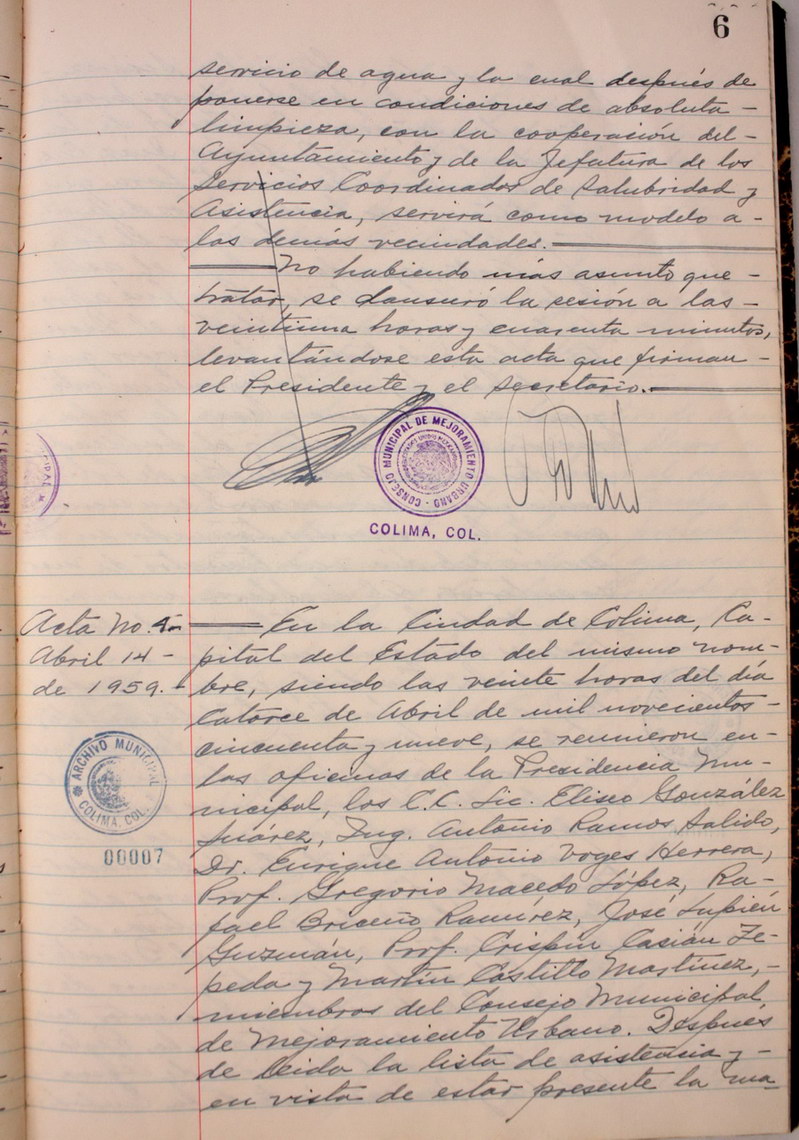 6
servicio de agua y la cual después de
ponerse en condiciones de absoluta -
limpieza, con la cooperación del -
Ayuntamiento y de la Jefatura de los
Servicios Coordinados de Salubridad y
Asistencia, servirá como modelo a -
las demás vecindades.
No habiendo más asunto que -
tratar, se clausuró la sesión a las -
veintiuna horas y cuarenta minutos,
levantándose esta acta que firman -
el Presidente y el Secretario.
CONSEJO MUNICIPAL DE MEJORAMIENTO URBANO
COLIMA, COL.
Acta No. 4-
Abril 14 -
de 1959. -
En la Ciudad de Colima, Ca-
pital del Estado del mismo nom-
bre, siendo las veinte horas del día
catorce de Abril de mil novecientos -
cincuenta y nueve, se reunieron en -
las oficinas de la Presidencia Mu-
nicipal, los C.C. Lic. Eliseo González
Juárez, Ing. Antonio Ramos Salido,
Dr. Enrique Antonio Voges Herrera,
Prof. Gregorio Macedo López, Ra-
fael Briceño Ramírez, José Lupién
Guzmán, Prof. Crispín Casián Ze-
peda y Martín Castillo Martínez, -
miembros del Consejo Municipal
de Mejoramiento Urbano. Después
de leida la lista de asistencia y -
en vista de estar presente la ma-
ARCHIVO MUNICIPAL
COLIMA, COL.
00007